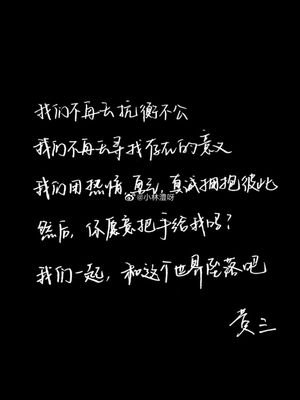 我们不再去抗衡不公
我们不再去寻找存在的意义
我们用热情,真心,真诚拥抱彼此
@小林澧呀
然后,你愿意把手给我吗?
我们一起,和这个世界坠落吧
黄三